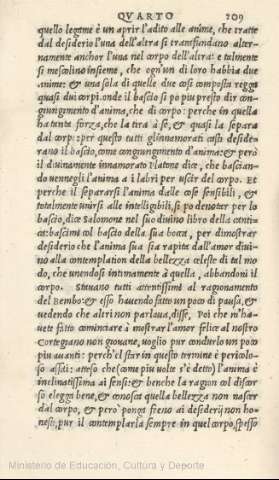 QVARTO 209
quello legame è un aprir l'adito alle anime, che tratte
dal desiderio l'una dell'altra si transfundano alter-
namente anchor l'una nel corpo dell'altra: e talmente
si mescolino insieme, che ogn'un di loro habbia due
anime: & una sola di quelle due cosi composta regga
quasi dui corpi. onde il bascio si po piu presto dir con
giungimento d'anima, che di corpo: perche in quella
ha tanta forza, che la tira à se, & quasi la separa
dal corpo: per questo tutti gl'innamorati casti deside-
rano il bascio, come congiungimento d'anima: & però
il diuinamente innamorato Platone dice, che basciando
uennegli l'anima a i labri per uscir del corpo. Et
perche il separarsi l'anima dalle cose sensibili, &
totalmente unirsi alle intelligibili, si po denoter per lo
bascio, dice Salomone nel suo diuino libro della conti-
ca: bascimi col bascio della sua bocca, per dimostrar
desiderio che l'anima sua sia rapita dall'amor diui-
no alla contemplation della bellezza celeste di tal mo
do, che unendosi intimamente à quella, abbandoni il
corpo. Stauano tutti attentissimi al ragionamento
del Bembo: & esso hauendo fatto un poco di pausa, &
uedendo che altri non parlaua, disse. Poi che m'ha-
uete fatto cominciare à mostrar l'amor felice al nostro
Cortegiano non giouane, uoglio pur condurlo un poco
piu auanti: perche'l star in questo termine è pericolo-
so assai: atteso che (come piu uolte s'è detto) l'anima è
inclinatissima ai sensi: & benche la ragion col discor
so elegga bene, & conosca quella bellezza non nascer
dal corpo, & però ponga freno ai desiderij non ho-
nesti, pur il contemplarla sempre in quel corpo, spesso
Ministerio de Educación, Cultura y Deporte